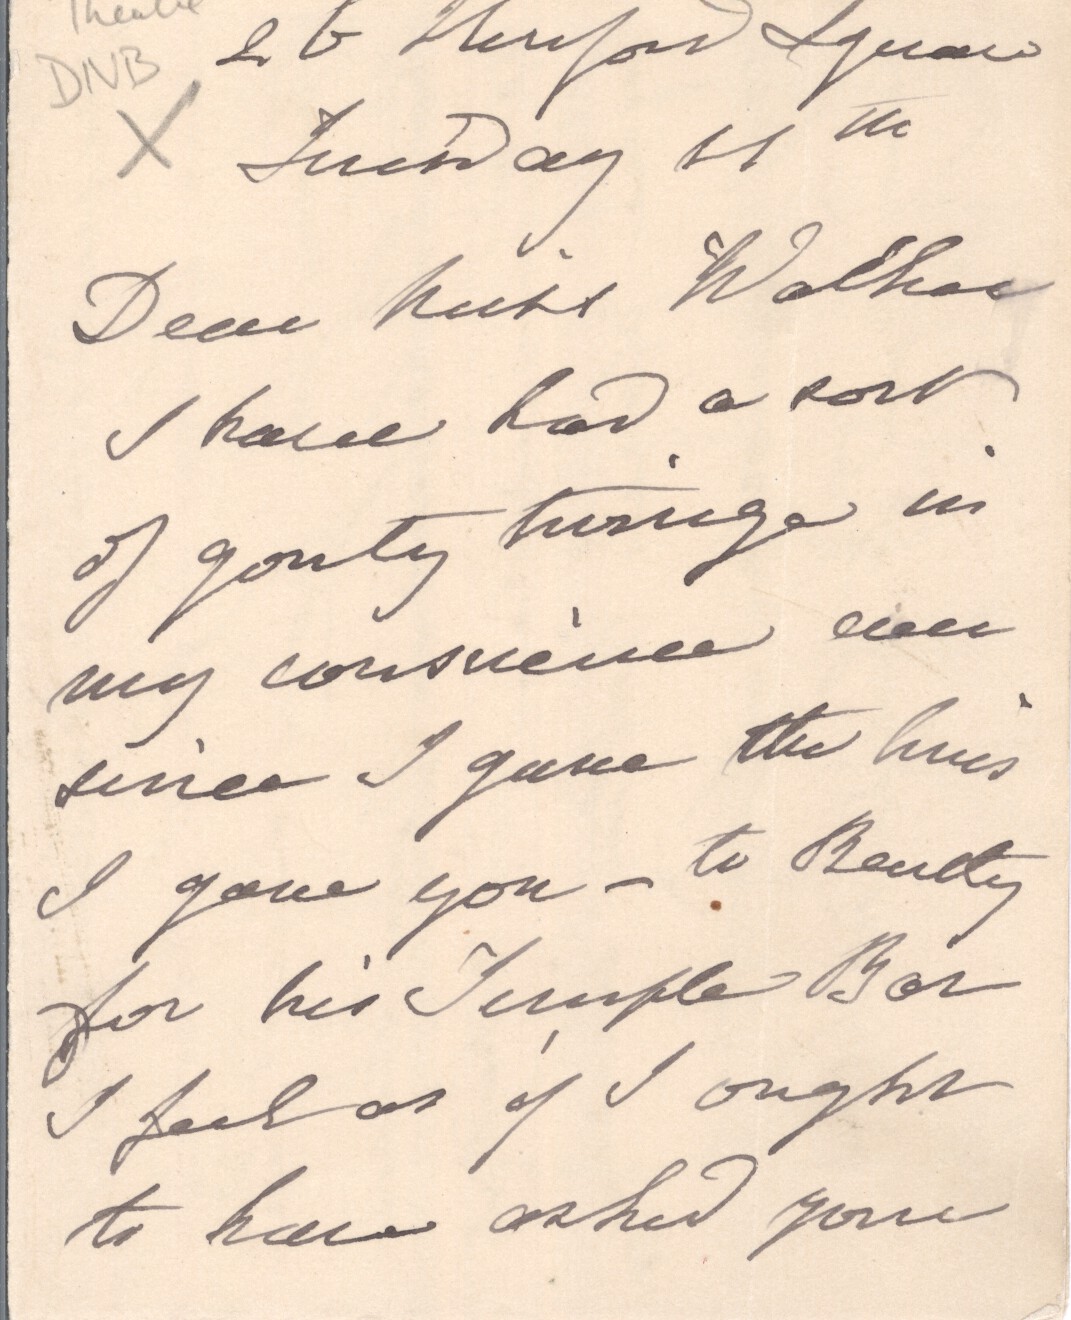 Theatre
DNB
X
26 Hereford Square
Tuesday 11th
Dear Miss Walker
I have had a sort
of gouty twinge in
my conscience ever
since I gave the lines
I gave you - to Bentley
for his Temple Bar
I feel as if I ought
to have asked your